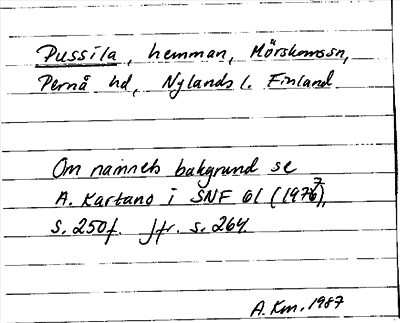 Pussila, hemman, Mörskomssn,
Pernå hd, Nylands l. Finland
Om namnets bakgrund se
A. Kartano i SNF 61 (1977),
s. 250f. Jfr. s. 264
A.Km. 1987